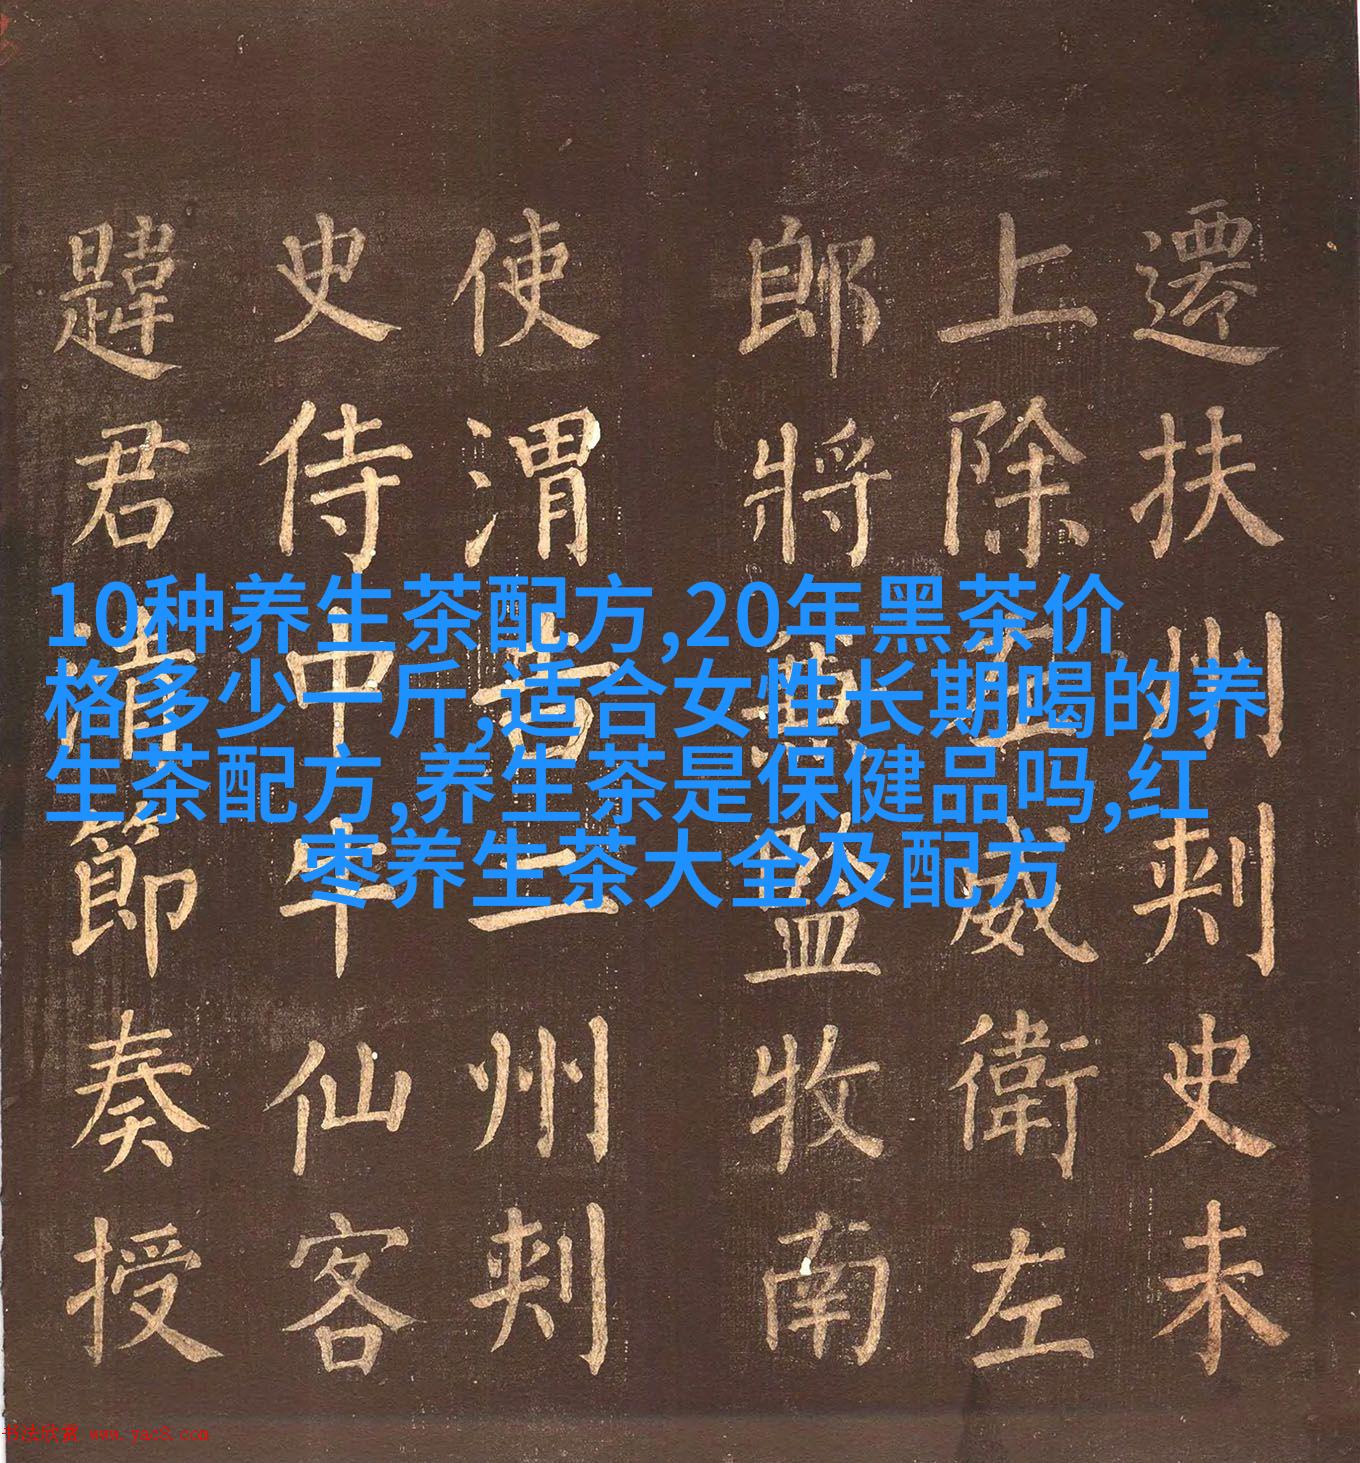 10种养生茶配方,20年黑茶价
格多少一斤,适合女性长期喝的养
生茶配方,养生茶是保健品吗,红
枣养生茶大全及配方
遷扶州刾史未
上除左威衛左
郎將兼監牧南
使渭吉二州刾
史侍中牛仙客
韙君清節奏授
书法欣赏 www.yac8.com